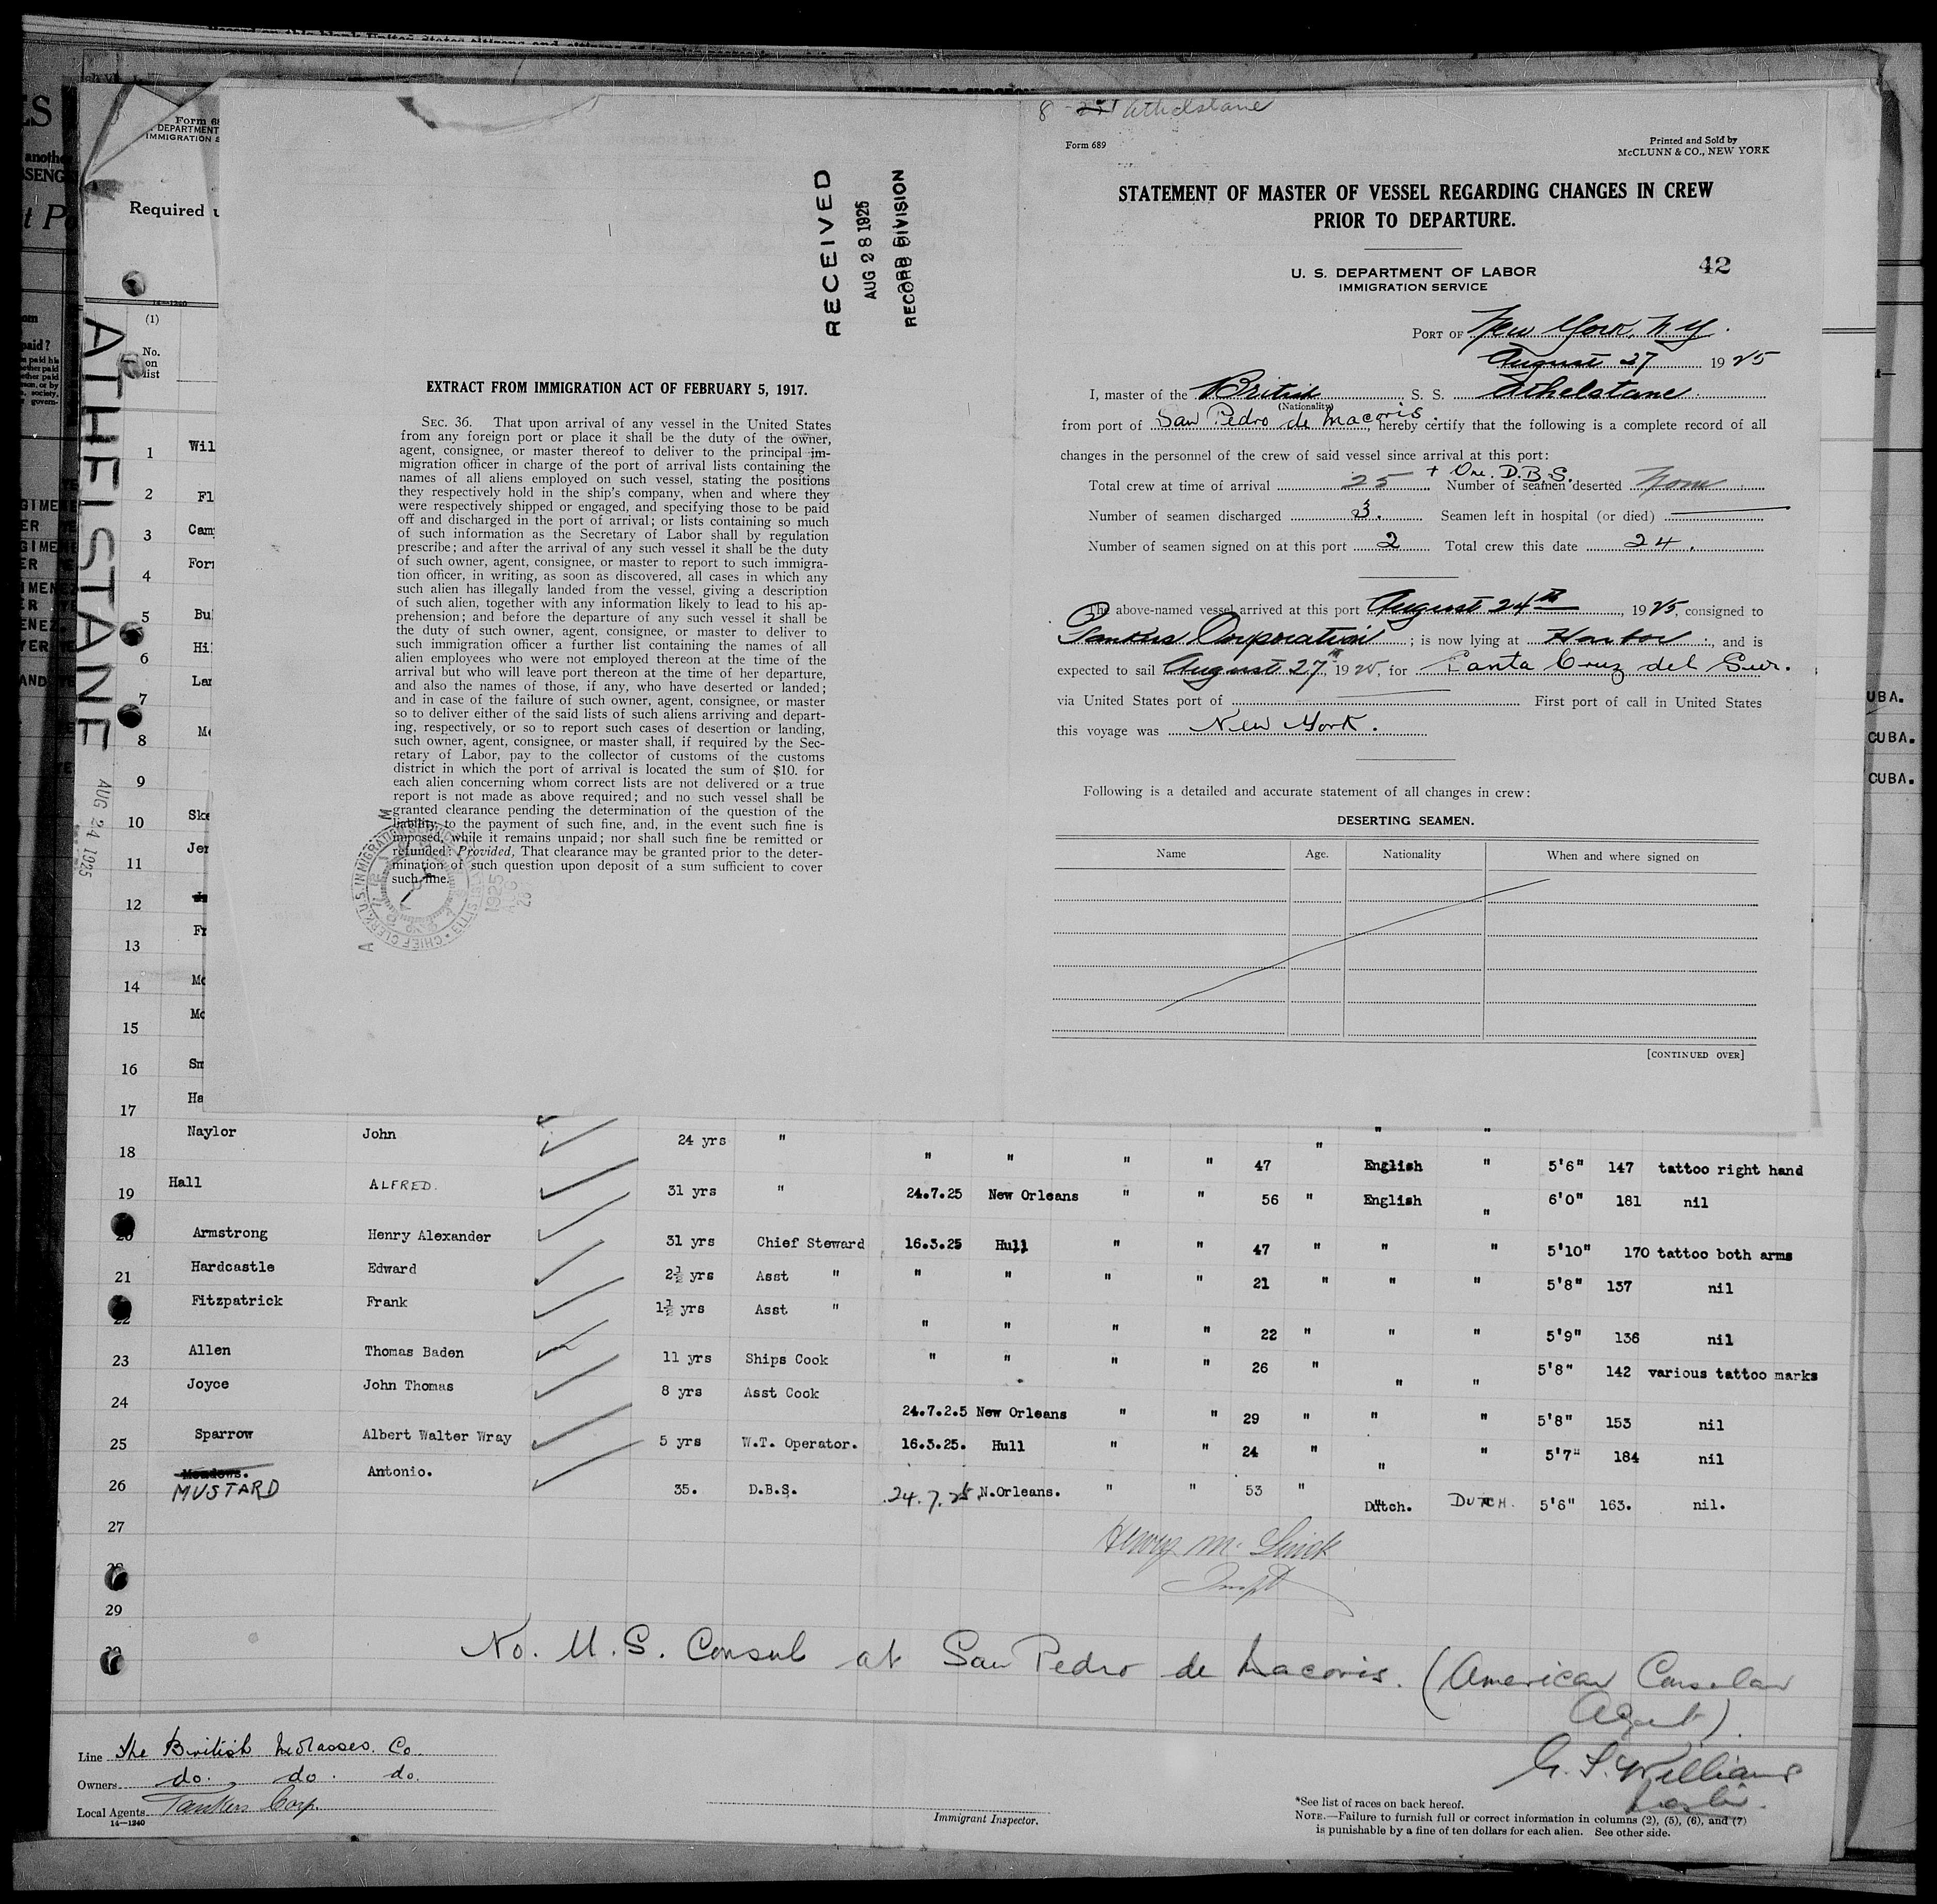 8 - 251 Athelstane
Form 689
Printed and Sold by
McCLUNN & CO., NEW YORK
STATEMENT OF MASTER OF VESSEL REGARDING CHANGES IN CREW
PRIOR TO DEPARTURE.
U. S. DEPARTMENT OF LABOR
IMMIGRATION SERVICE
42
PORT OF New York, N.Y.
August 27 1925
I, master of the British S. S. Athelstane
(Nationality)
from port of San Pedro de Macoris, hereby certify that the following is a complete record of all
changes in the personnel of the crew of said vessel since arrival at this port:
Total crew at time of arrival 25 + One. D.B.S. Number of seamen deserted None
Number of seamen discharged 3. Seamen left in hospital (or died)
Number of seamen signed on at this port 2 Total crew this date 24.
The above-named vessel arrived at this port August 24th, 1925, consigned to
Tankers Corporation; is now lying at Harbor, and is
expected to sail August 27th, 1925, for Santa Cruz del Sur.
via United States port of First port of call in United States
this voyage was New York.
Following is a detailed and accurate statement of all changes in crew:
DESERTING SEAMEN.
Name Age. Nationality When and where signed on
[CONTINUED OVER]
RECEIVED
AUG 28 1925
RECORD DIVISION
EXTRACT FROM IMMIGRATION ACT OF FEBRUARY 5, 1917.
SEC. 36. That upon arrival of any vessel in the United States
from any foreign port or place it shall be the duty of the owner,
agent, consignee, or master thereof to deliver to the principal im-
migration officer in charge of the port of arrival lists containing the
names of all aliens employed on such vessel, stating the positions
they respectively hold in the ship's company, when and where they
were respectively shipped or engaged, and specifying those to be paid
off and discharged in the port of arrival; or lists containing so much
of such information as the Secretary of Labor shall by regulation
prescribe; and after the arrival of any such vessel it shall be the duty
of such owner, agent, consignee, or master to report to such immigra-
tion officer, in writing, as soon as discovered, all cases in which any
such alien has illegally landed from the vessel, giving a description
of such alien, together with any information likely to lead to his ap-
prehension; and before the departure of any such vessel it shall be
the duty of such owner, agent, consignee, or master to deliver to
such immigration officer a further list containing the names of all
alien employees who were not employed thereon at the time of the
arrival but who will leave port thereon at the time of her departure,
and also the names of those, if any, who have deserted or landed;
and in case of the failure of such owner, agent, consignee, or master
so to deliver either of the said lists of such aliens arriving and depart-
ing, respectively, or so to report such cases of desertion or landing,
such owner, agent, consignee, or master shall, if required by the Sec-
retary of Labor, pay to the collector of customs of the customs
district in which the port of arrival is located the sum of $10. for
each alien concerning whom correct lists are not delivered or a true
report is not made as above required; and no such vessel shall be
granted clearance pending the determination of the question of the
liability to the payment of such fine, and, in the event such fine is
imposed, while it remains unpaid; nor shall such fine be remitted or
refunded: Provided, That clearance may be granted prior to the deter-
mination of such question upon deposit of a sum sufficient to cover
such fine.
CHIEF CLERK, U.S. IMMIGRATION SERVICE
1925
ATHELSTANE
AUG 24 1925
Form 68
DEPARTMENT
IMMIGRATION S
Required u
14-1240
(1)
No.
on
list
1 Wil
2 Fl
3 Cam
4 Forr
5 Bul
6 Hi
7 Lar
8 Mc
9
10 Ske
11 Jer
12
13 Fr
14 Mc
15 Mc
16 Sm
17 Ha
18 Naylor John 24 yrs " " " " " 47 " English " 5'6" 147 tattoo right hand
19 Hall ALFRED. 31 yrs " 24.7.25 New Orleans " " 56 " English " 6'0" 181 nil
20 Armstrong Henry Alexander 31 yrs Chief Steward 16.3.25 Hull " " 47 " " " 5'10" 170 tattoo both arms
21 Hardcastle Edward 2½ yrs Asst " " " " " 21 " " " 5'8" 137 nil
22 Fitzpatrick Frank 1½ yrs Asst " " " " " 22 " " " 5'9" 136 nil
23 Allen Thomas Baden 11 yrs Ships Cook " " " " 26 " " " 5'8" 142 various tattoo marks
24 Joyce John Thomas 8 yrs Asst Cook 24.7.2.5 New Orleans " " 29 " " " 5'8" 153 nil
25 Sparrow Albert Walter Wray 5 yrs W.T. Operator. 16.3.25. Hull " " 24 " " " 5'7" 184 nil
26 Meadows. MUSTARD Antonio. 35. D.B.S. 24.7.25 N.Orleans. " " 53 " Dutch. DUTCH. 5'6" 163. nil.
27
28
29
30
Inspt
No. U.S. Consul at San Pedro de Macoris. (American Consular
Agent).
G. S. Williams
Master.
Line The British Molasses. Co.
Owners do. do. do.
Local Agents Tankers Corp.
14-1240
Immigrant Inspector.
*See list of races on back hereof.
NOTE.—Failure to furnish full or correct information in columns (2), (5), (6), and (7)
is punishable by a fine of ten dollars for each alien. See other side.
UBA.
CUBA.
CUBA.